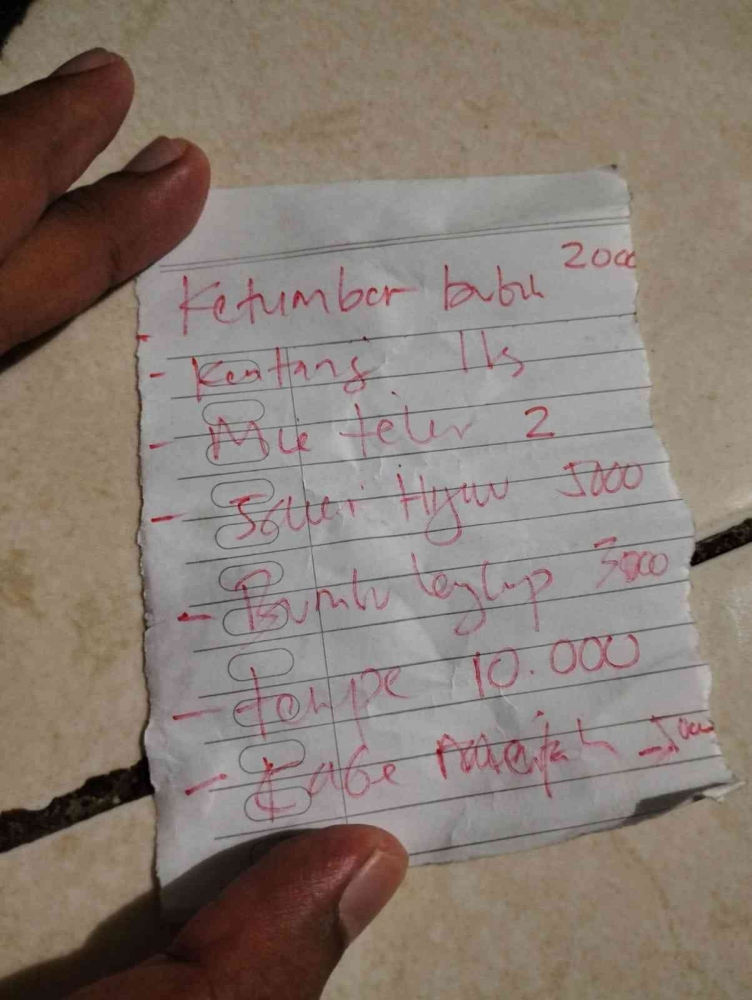 Ketumbar bubu 2000
- Kentang 1kg
- Mie telur 2
- Sawi Hijau 5000
- Bumbu lengkap 3000
- tempe 10.000
- Cabe merah 5000